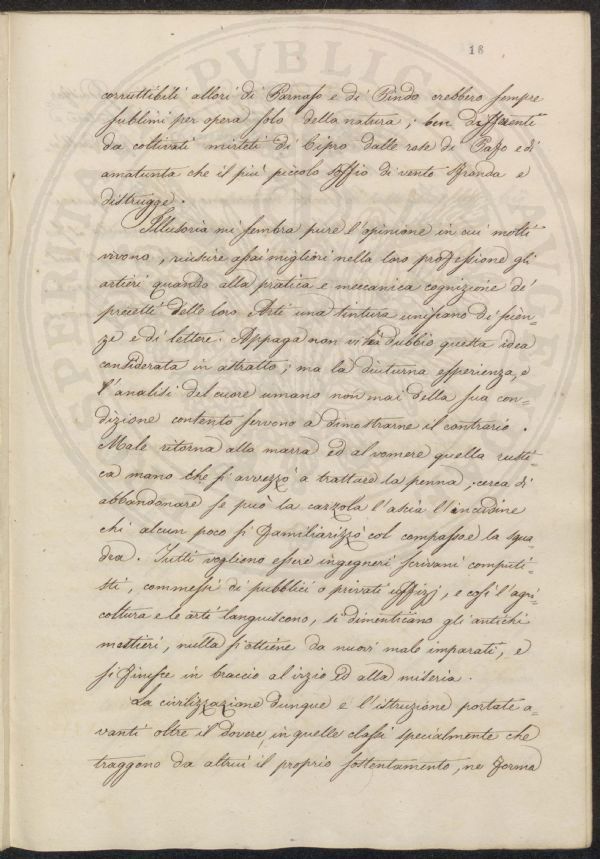 18
corruttibili allori di Parnaso e di Pindo crebbero sempre
sublimi per opera solo della natura; ben differenti
da coltivati mirteti di Cipro dalle rose di Pafo e di
amatunta che il più piccolo soffio di vento sfronda e
distrugge.
Illusoria mi sembra pure l'opinione in cui molti
vivono, riuscire assai migliori nella loro professione gli
artieri quando alla pratica e meccanica cognizione de'
precetti delle loro Arti una tintura unissano di scien=
ze e di lettere. Appaga non vi ha dubbio questa idea
considerata in astratto; ma la diuturna esperienza, e
l'analisi del cuore umano non mai della sua con=
dizione contento servono a dimostrarne il contrario.
Male ritorna alla marra ed al vomere quella rusti=
ca mano che si avvezzò a trattare la penna; cerca di
abbandonare se può la cazzola l'ascia l'incudine
chi alcun poco si familiarizzò col compasso e la squa=
dra. Tutti vogliono essere ingegneri scrivani computi=
sti, commessi di pubblici o privati uffizj, e così l'agri=
coltura e le arti languiscono, si dimenticano gli antichi
mestieri, nulla si ottiene da nuovi male imparati, e
si finisce in braccio al vizio ed alla miseria.
La civilizzazione dunque e l'istruzione portate a=
vanti oltre il dovere, in quelle classi specialmente che
traggono da altrui il proprio sostentamento, ne forma
SPERMA PVBLIC